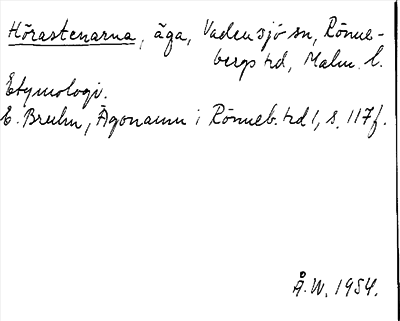 Hörastenarna, äga, Vadensjö sn, Rönne-
bergs hd, Malm. l.
Etymologi.
E. Bruhn, Ägonamn i Rönneb. hd 1, s. 117f.
Å.W. 1954.